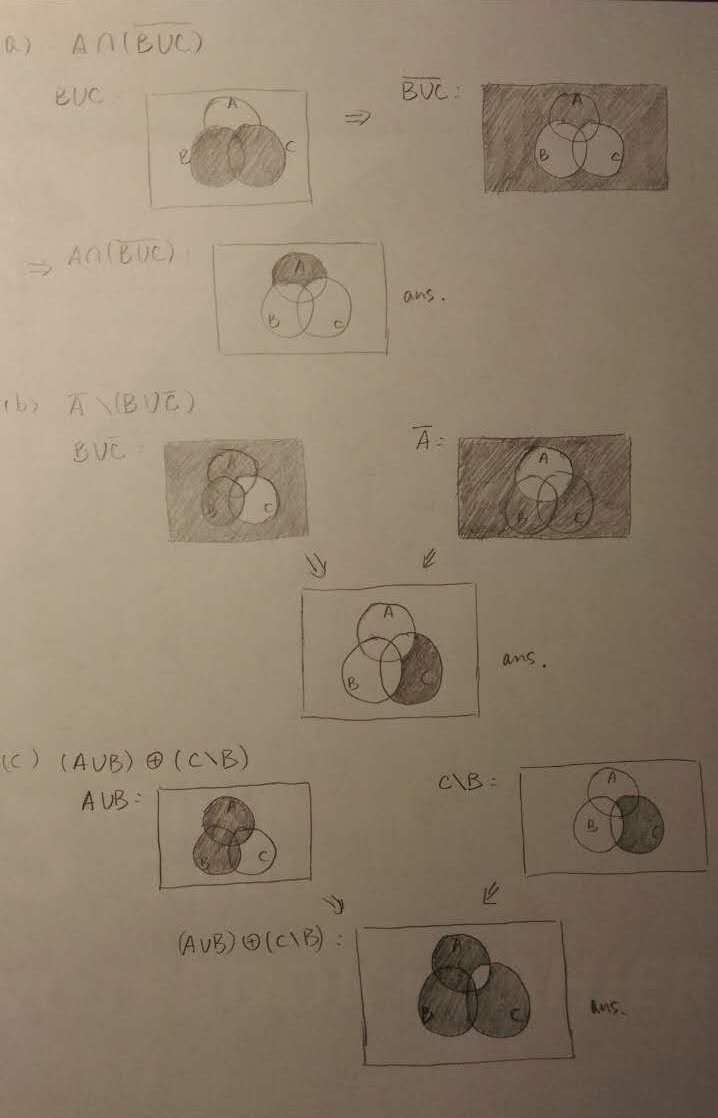 a) A∩(B̅U̅C̅)
BUC
A
B
C
⇒ B̅U̅C̅:
A
B
C
⇒ A∩(B̅U̅C̅):
A
B
C
ans.
(b) A̅ \(BUC̅)
BUC̅:
A
B
C
A̅=
A
B
C
A
B
C
ans.
(C) (AUB) ⊕ (C\B)
AUB:
A
B
C
C\B:
A
B
C
(AUB)⊕(C\B):
A
B
C
ans.